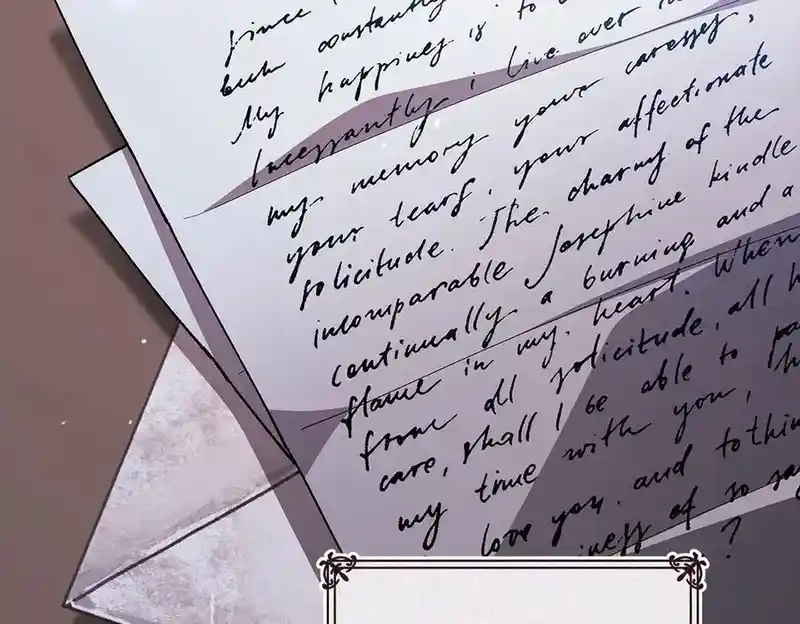 since
but constantly
My happiness is to
Incessantly i live over
my memory your caresses,
your tears, your affectionate
solicitude. The charms of the
incomparable Josephine kindle
continually a burning and a
flame in my heart. When
from all solicitude, all
care, shall I be able to
my time with you,
love you. and to thin
iness of so
?